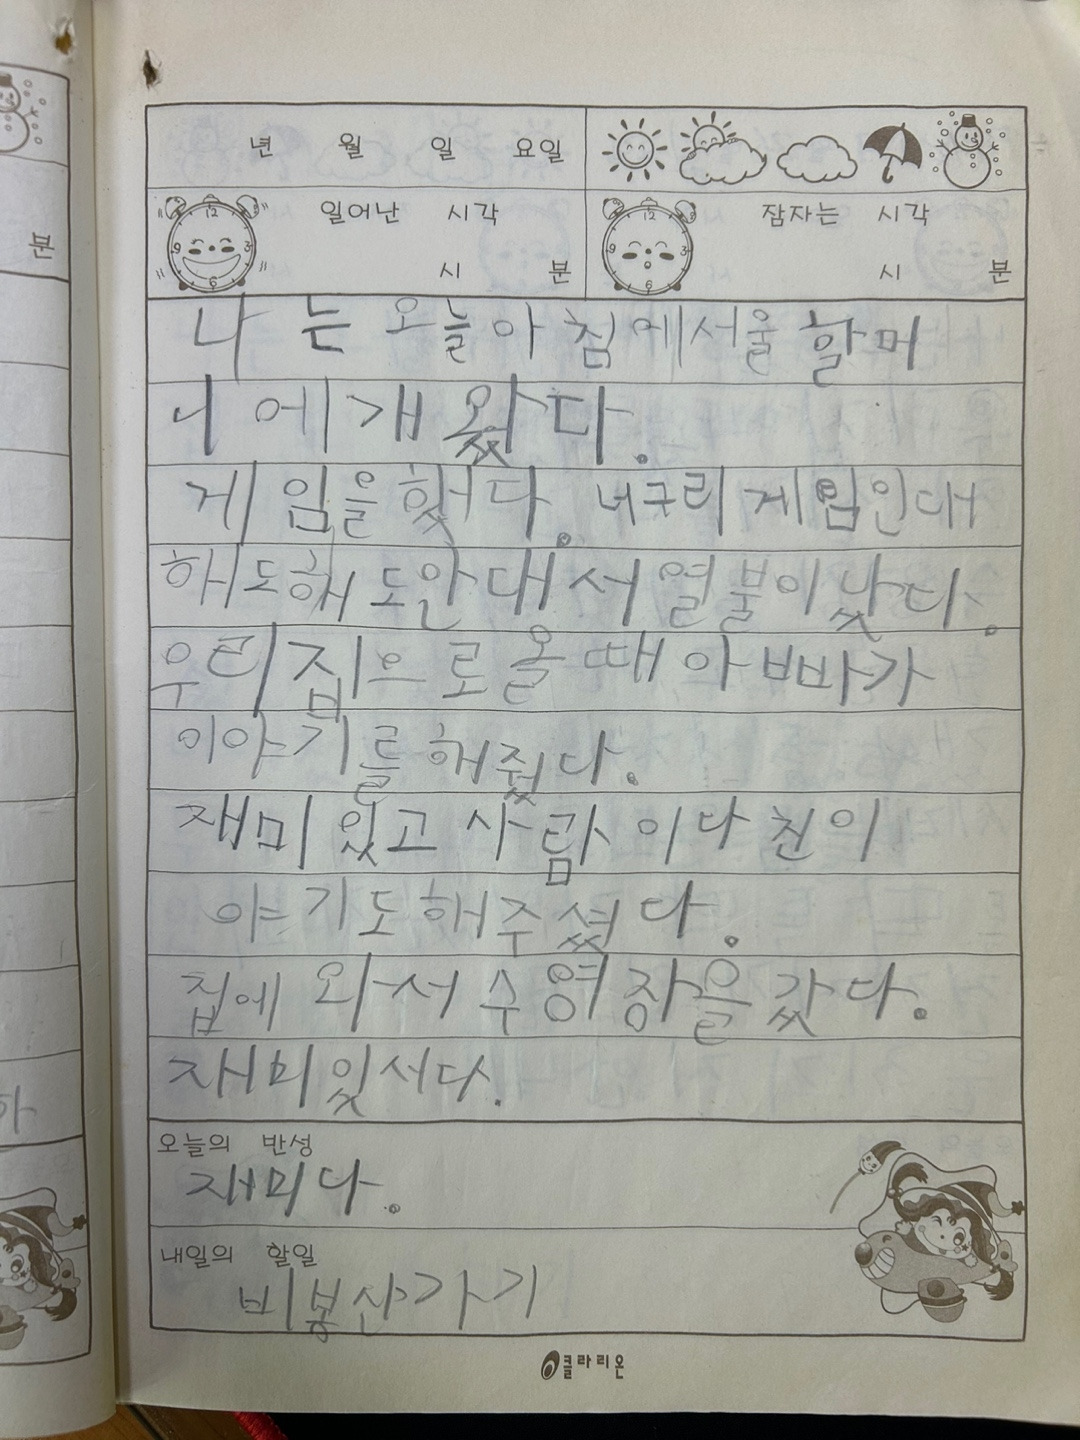 년 월 일 요일
일어난 시각
시 분
잠자는 시각
시 분
분
나는 오늘아침에서울 할머
니에개 왔다.
게임을 했다. 너구리 게임인대
해도해도안대서 열불이났다.
우리집으로올때 아빠가
이야기를 해줬다.
재미있고 사람이다친이
야기도해주셨다.
집에 와서 수영장을 갔다.
재미있서다.
오늘의 반성
재미다.
내일의 할일
비봉산가기
클라리온